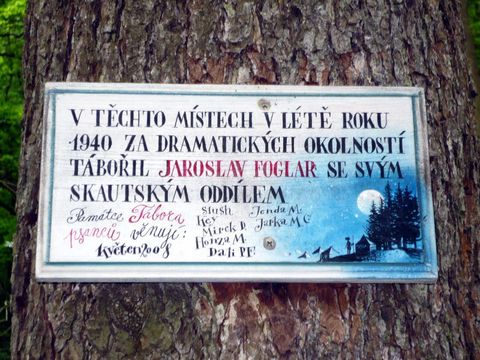 V TĚCHTO MÍSTECH V LÉTĚ ROKU
1940 ZA DRAMATICKÝCH OKOLNOSTÍ
TÁBOŘIL JAROSLAV FOGLAR SE SVÝM
SKAUTSKÝM ODDÍLEM
Památce Tábora
psanců věnují:
Květen 2008
Slush
Key
Mirek D.
Honza M.
Dali PF.
Jonda M.
Jarka M G